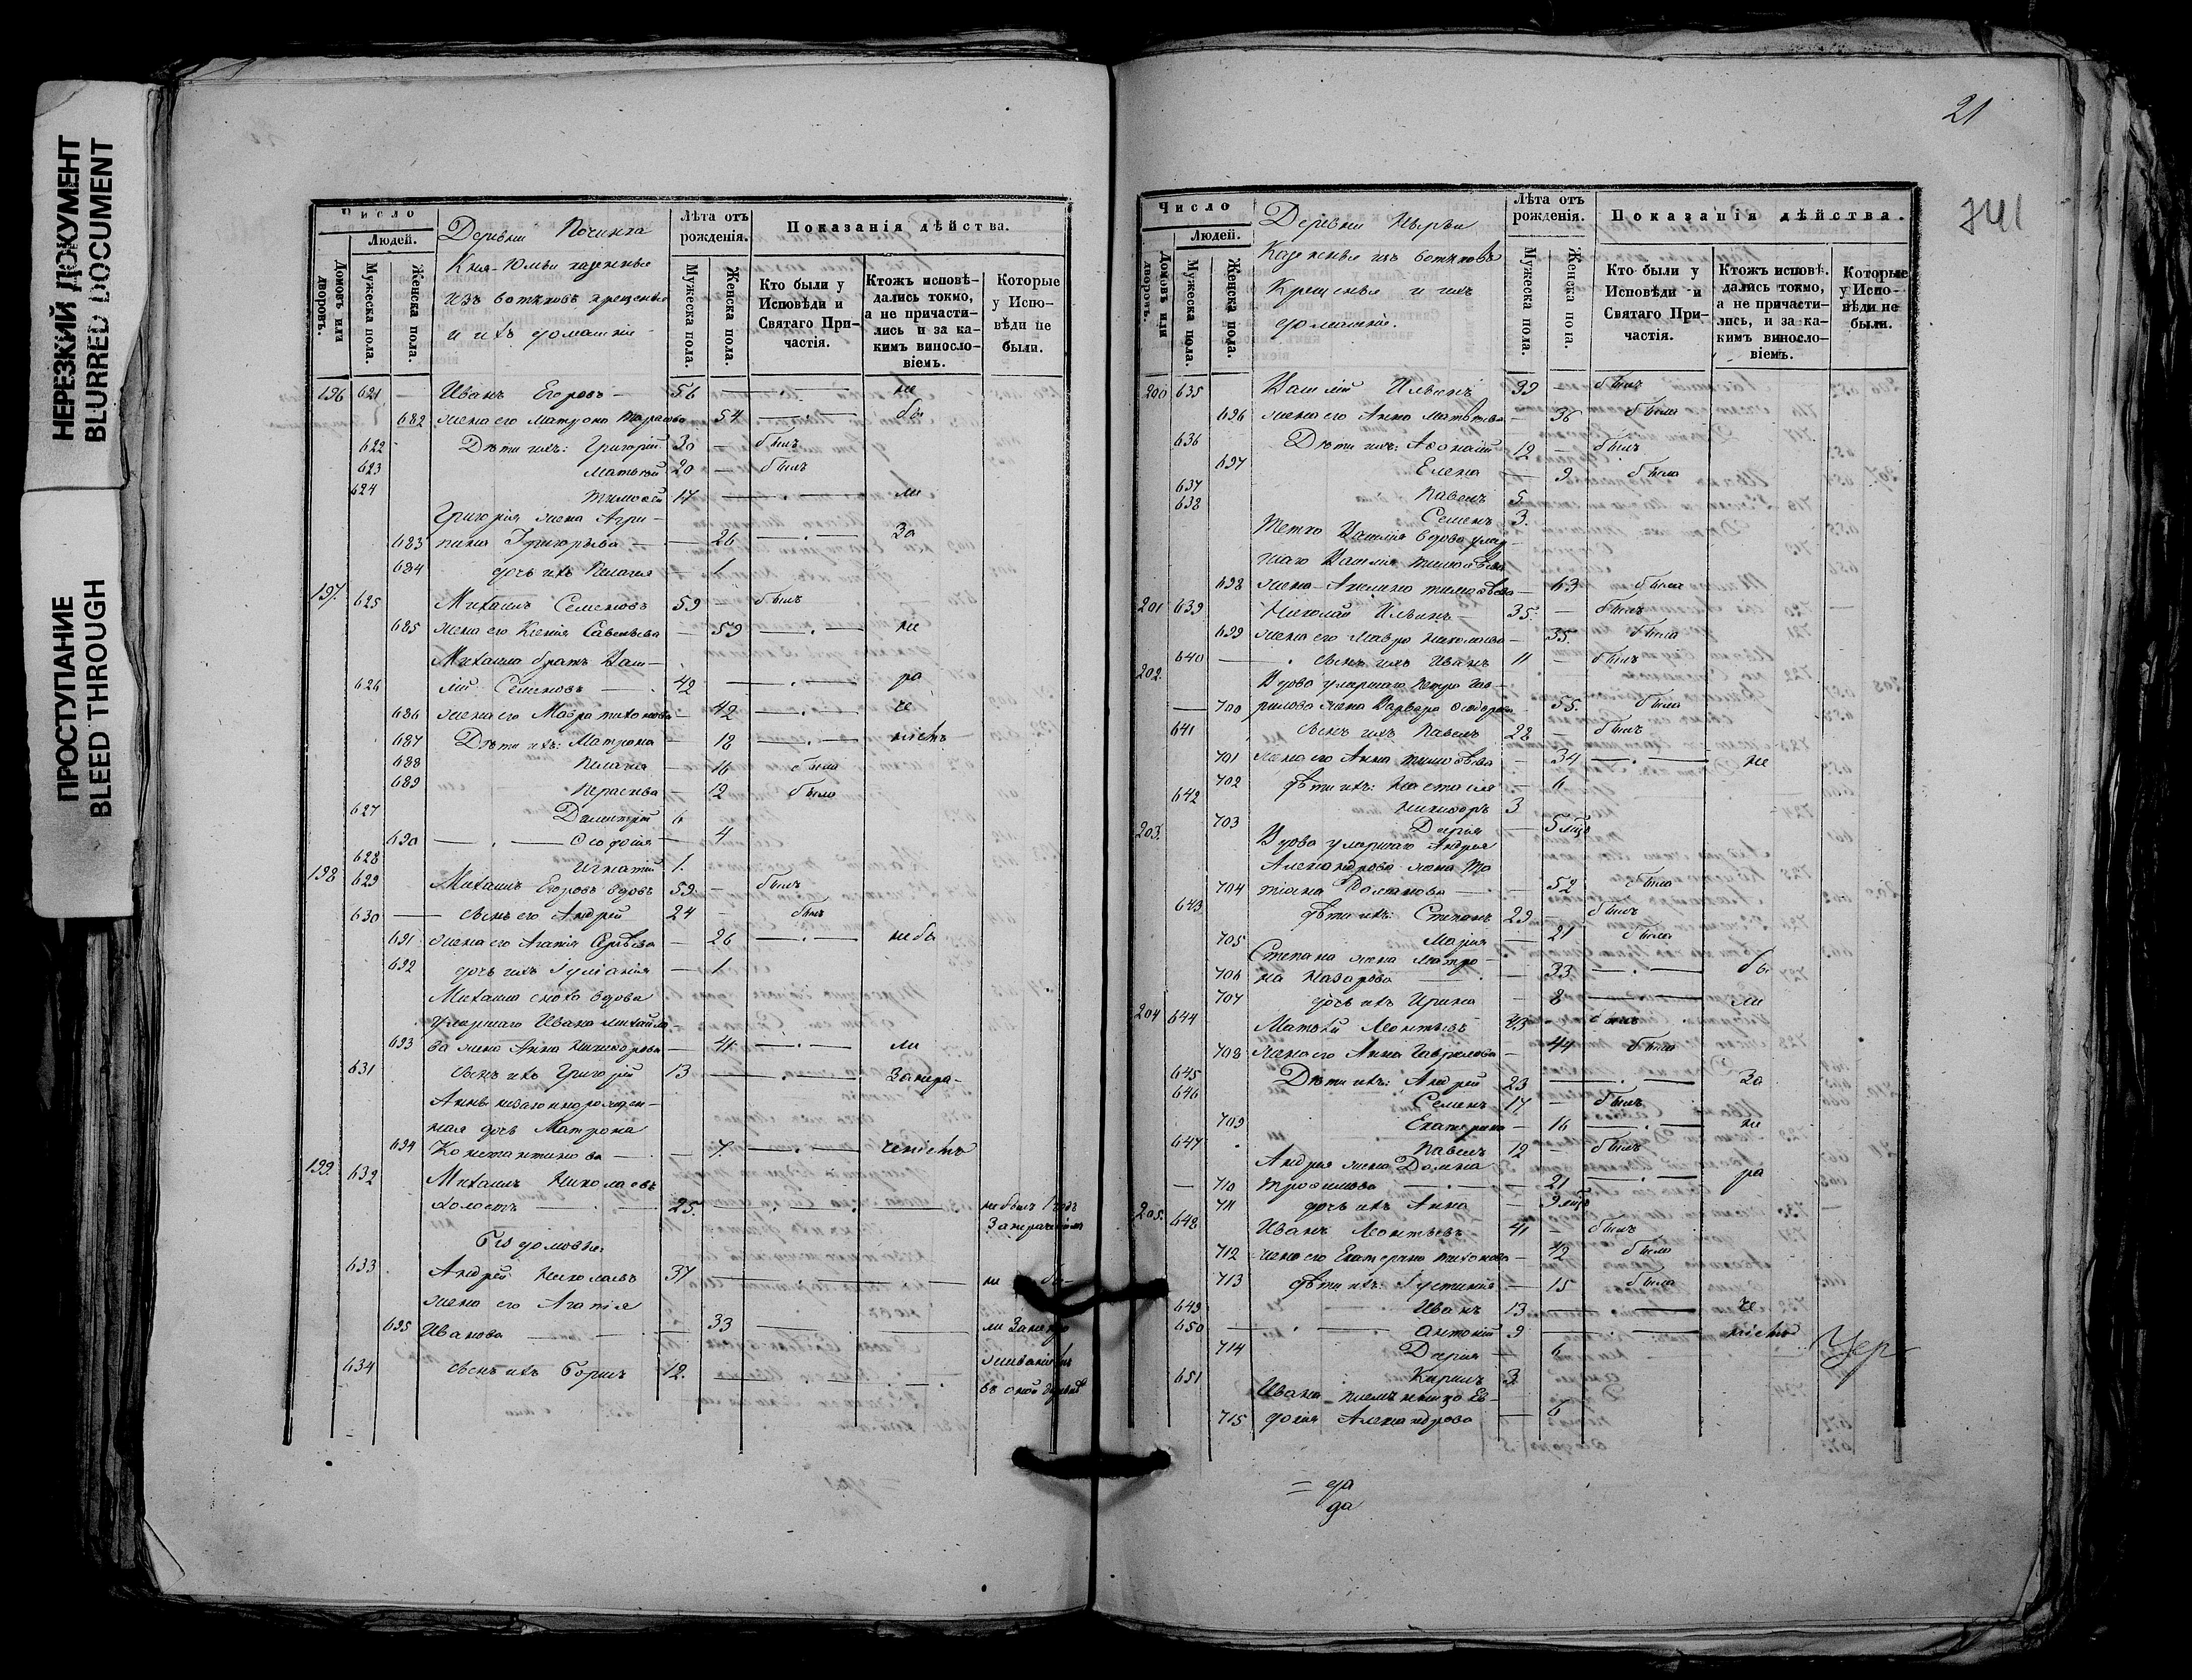 НЕРЕЗКИЙ ДОКУМЕНТ
BLURRED DOCUMENT
ПРОСТУПАНИЕ
BLEED THROUGH
Число
Людей.
Домовъ или дворовъ.
Мужеска пола.
Женска пола.
Деревни Починка
казенные
изъ вотяковъ крещеные
и ихъ домашніе
Лѣта отъ рожденія.
Мужеска пола.
Женска пола.
Показанія дѣйства.
Кто были у Исповѣди и Святаго Причастія.
Ктожъ исповѣдались токмо, а не причастились и за какимъ винословіемъ.
Которые у Исповѣди не были.
196 621 — Иванъ Егоровъ — 56 не
682 жена его Матрона Тарасова 54 бы
622 Дѣти ихъ: Григорій 30 — былъ
623 Матвѣй 20 — былъ
624 Тимоѳей 17 ли
Григорія жена Агри-
683 пина Григорьева — 26 За
684 дочь ихъ Пелагея — 1
197. 625 Михаилъ Семеновъ 59 — былъ
685 жена его Ксенія Савельева — 59 не
Михаила братъ Васи-
626 лій Семеновъ 42 ра
686 жена его Мавра Тихонова — 42 че
687 Дѣти ихъ: Матрона — 18 ніемъ
688 Пелагея — 16 была
689 Параскева — 12 была
627 Димитрій 6
690 Ѳеодосія — 4
628 Игнатій 1.
198 629 Михаилъ Егоровъ вдовъ 59. — былъ
630 — сынъ его Андрей 24 — былъ
691 жена его Агапія — 26 не бы
692 дочь ихъ Іуліанія — 1
Михаила сноха вдова
умершаго Ивана Михайло-
693 ва жена Анна Никифорова — 41 ли
631 сынъ ихъ Григорій 13 За нера-
Анны незаконнорожден-
ная дочь Матрона
694 Константинова — 7. ченіемъ
199. 632 Михаилъ Николаевъ
холостъ 25. не былъ
За нераченіемъ
Бездомовые
633 Андрей Николаевъ 37 не бы-
жена его Агапія
695 Иванова — 33 ли За непро
634 сынъ ихъ Борисъ 12. живаніемъ
въ оной деревнѣ
21
741
Число
Людей.
Домовъ или дворовъ.
Мужеска пола.
Женска пола.
Деревни
Казенные изъ вотяковъ
Крещеные и ихъ
домашніе.
Лѣта отъ рожденія.
Мужеска пола.
Женска пола.
Показанія дѣйства.
Кто были у Исповѣди и Святаго Причастія.
Ктожъ исповѣдались токмо, а не причастились, и за какимъ винословіемъ.
Которые у Исповѣди не были.
200 635 Василій Ильинъ 39 — былъ
696 жена его Анна Матвѣева — 36 была
636 Дѣти ихъ: Аѳонасій 12 — былъ
697 Елена — 9 была
637 Павелъ 5
638 Семенъ 3.
Тетка Василія вдова умер-
шаго Василія Тимоѳѣева
698 жена Акилина Тимоѳѣева — 63 была
201 639 Николай Ильинъ 35. — былъ
699 жена его Мавра Николаева — 35. была
640 — сынъ ихъ Иванъ 11 — былъ
202. Вдова умершаго Петра Гав-
— 700 рилова жена Варвара Ѳеодорова — 55. была
641 сынъ ихъ Павелъ 28 — былъ
701 жена его Анна Тимоѳѣева — 34 не
702 дѣти ихъ: Настасія — 6
642 Никифоръ 3
703 Дарія — 5 мѣс
203. Вдова умершаго Андрея
Александрова жена Та
704 тіана Романова — 52 была
643 дѣти ихъ: Степанъ 29 — былъ
705 Марія — 21 была
Степана жена Матро-
706 на Назарова — 33 бы
707 дочь ихъ Ирина — 8 ли
204 644 Матвѣй Леонтьевъ 43 — былъ
708 жена его Анна Гаврилова — 44 была
645 Дѣти ихъ: Андрей 23 За
646 Семенъ 17 — былъ
709 Екатерина — 16 не
647 Павелъ 12 — былъ
Андрея жена Домна
— 710 Трофимова — 21 ра
711 дочь ихъ Анна — 9 мѣс
205. 648 Иванъ Леонтьевъ 41 — былъ
712 жена его Екатерина Тихонова — 42 была
713 дѣти ихъ: Іустинія — 15 была
649 Иванъ 13 че
650 Антоній 9 ніемъ
714 Дарія — 6
651 Кирилъ 3
Ивана племянница Ев-
715 докія Александрова — 6